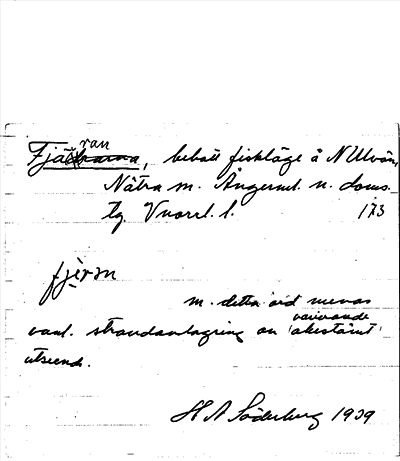 Fjäran, bebott fiskläge å N Ulvön,
Nätra sn. Ångerml. n. doms.
tg. Vnorrl. l. 173
fjèrαn
m. detta ord menas
vanl. strandanlagring av varierande
utseende.
H A Söderberg 1939